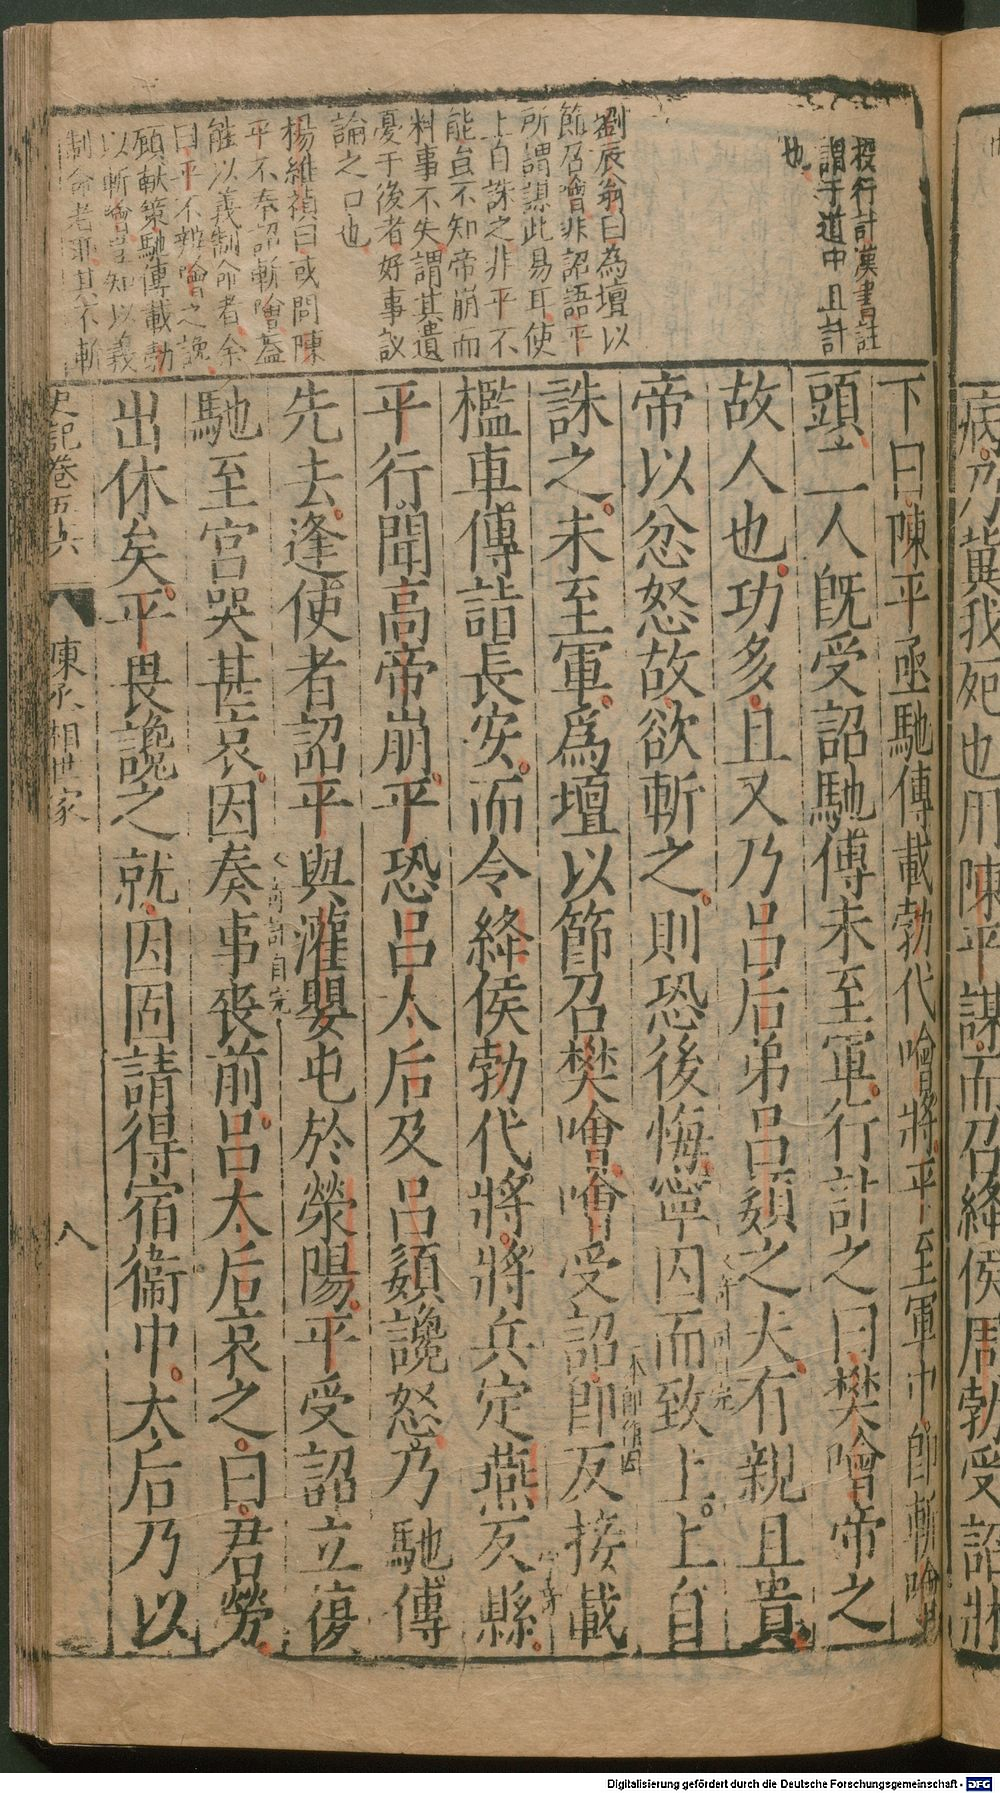 病乃冀我死也用陳平謀而召絳侯周勃受詔牀
按行計漢書註
謂于道中且計
也
劉辰翁曰為壇以
節召噲非詔語平
所謂謀此易耳使
上自誅之非平不
能豈不知帝崩而
料事不失謂其遺
憂于後者好事議
論之口也
楊維禎曰或問陳
平不奉詔斬噲蓋
能以義制命者余
曰平不辨噲之讒
顧獻策馳傳載勃
以斬噲豈知以義
制命者耶其不斬
下曰陳平亟馳傳載勃代噲將平至軍中即斬噲
頭二人既受詔馳傳未至軍行計之曰樊噲帝之
故人也功多且又乃呂后弟呂嬃之夫有親且貴
帝以忿怒故欲斬之則恐後悔寧囚而致上上自
一本即作因
誅之未至軍為壇以節召樊噲噲受詔即反接載
檻車傳詣長安而令絳侯勃代將將兵定燕反縣
平行聞高帝崩平恐呂太后及呂嬃讒怒乃馳傳
先去逢使者詔平與灌嬰屯於滎陽平受詔立復
馳至宮哭甚哀因奏事喪前呂太后哀之曰君勞
出休矣平畏讒之就因固請得宿衞中太后乃以
史記卷五六
陳丞相世家
八
Digitalisierung gefördert durch die Deutsche Forschungsgemeinschaft - DFG